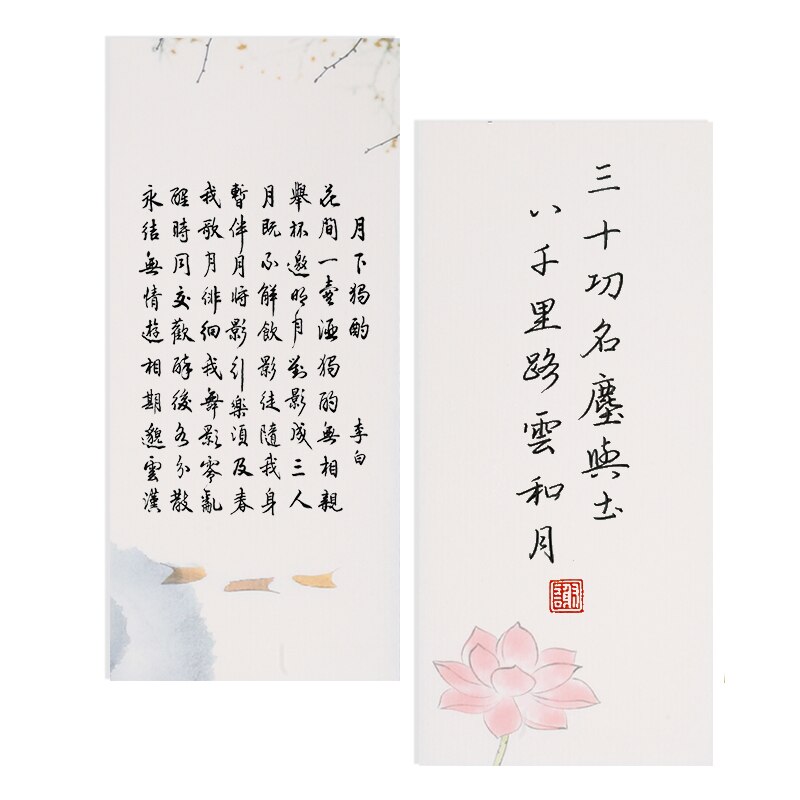 月下獨酌 李白
花間一壺酒獨酌無相親
舉杯邀明月對影成三人
月既不解飲影徒隨我身
暫伴月將影行樂須及春
我歌月徘徊我舞影零亂
醒時同交歡醉後各分散
永結無情遊相期邈雲漢
三十功名塵與土
八千里路雲和月